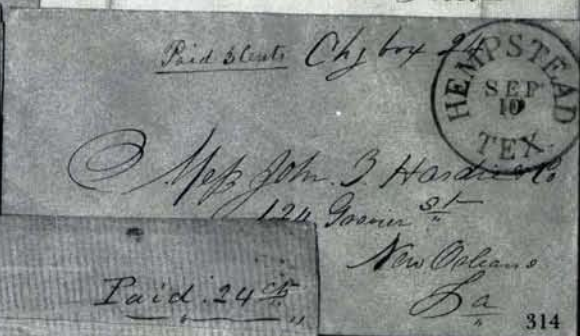 Paid 3 Cents Chg box 24
HEMPSTEAD
SEP
10
TEX.
Mess John. T. Hardie & Co
124 Gravier st
New Orleans
La
Paid. 24 cts
314